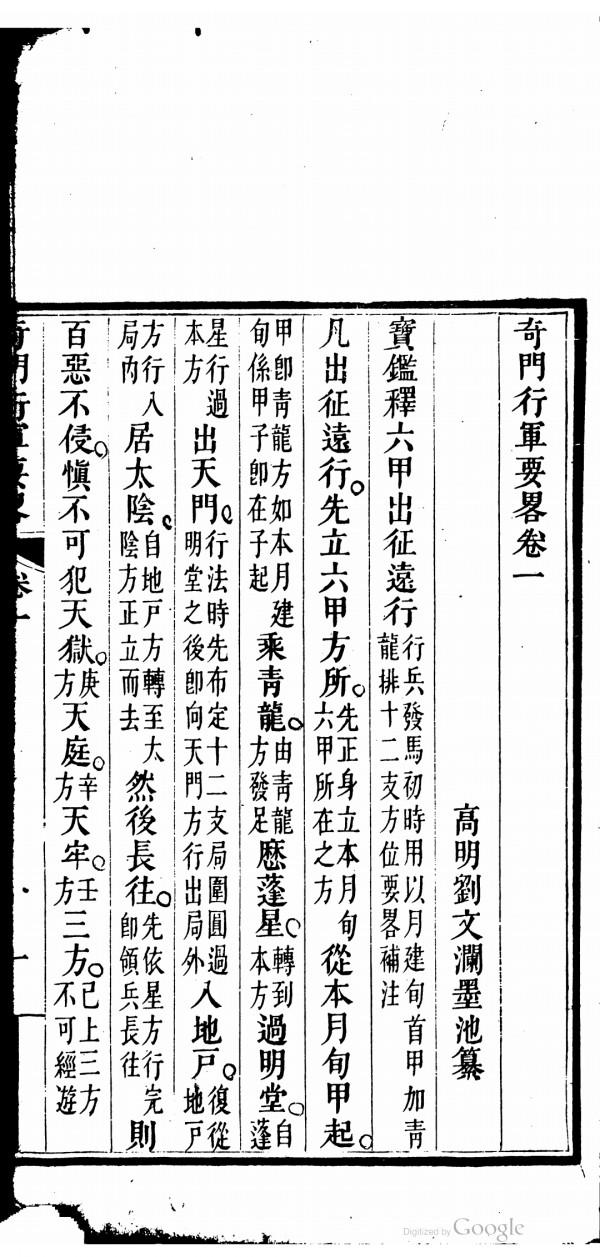 奇門行軍要畧卷一
髙明劉文瀾墨池纂
寶鑑釋六甲出征遠行行兵發馬初時用以月建旬首甲加青龍排十二支方位要畧補注
凡出征遠行。先立六甲方所。先正身立本月旬六甲所在之方從本月旬甲起。
甲卽青龍方如本月建旬係甲子卽在子起乘青龍。由青龍方發足厯蓬星。轉到本方過明堂。自蓬
星行過本方出天門。行法時先布定十二支局圍圓過明堂之後卽向天門方行出局外入地戶。復從地戶
方行入局內居太陰。自地戶方轉至太陰方正立而去然後長往。先依星方行完卽領兵長往則
百惡不侵。愼不可犯天獄。庚方天庭。辛方天牢。壬方三方。已上三方不可經遊
奇門行軍要畧 卷一 一